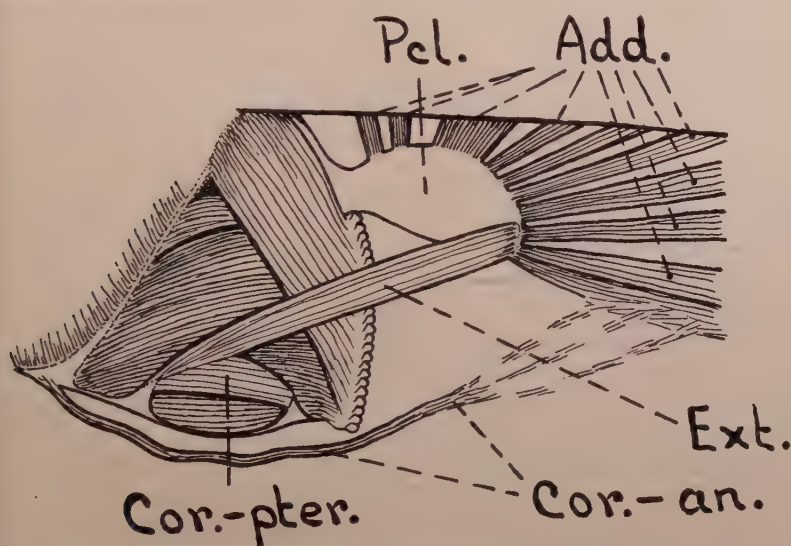 Pcl. Add.
Ext.
Cor.-pter. Cor.-an.